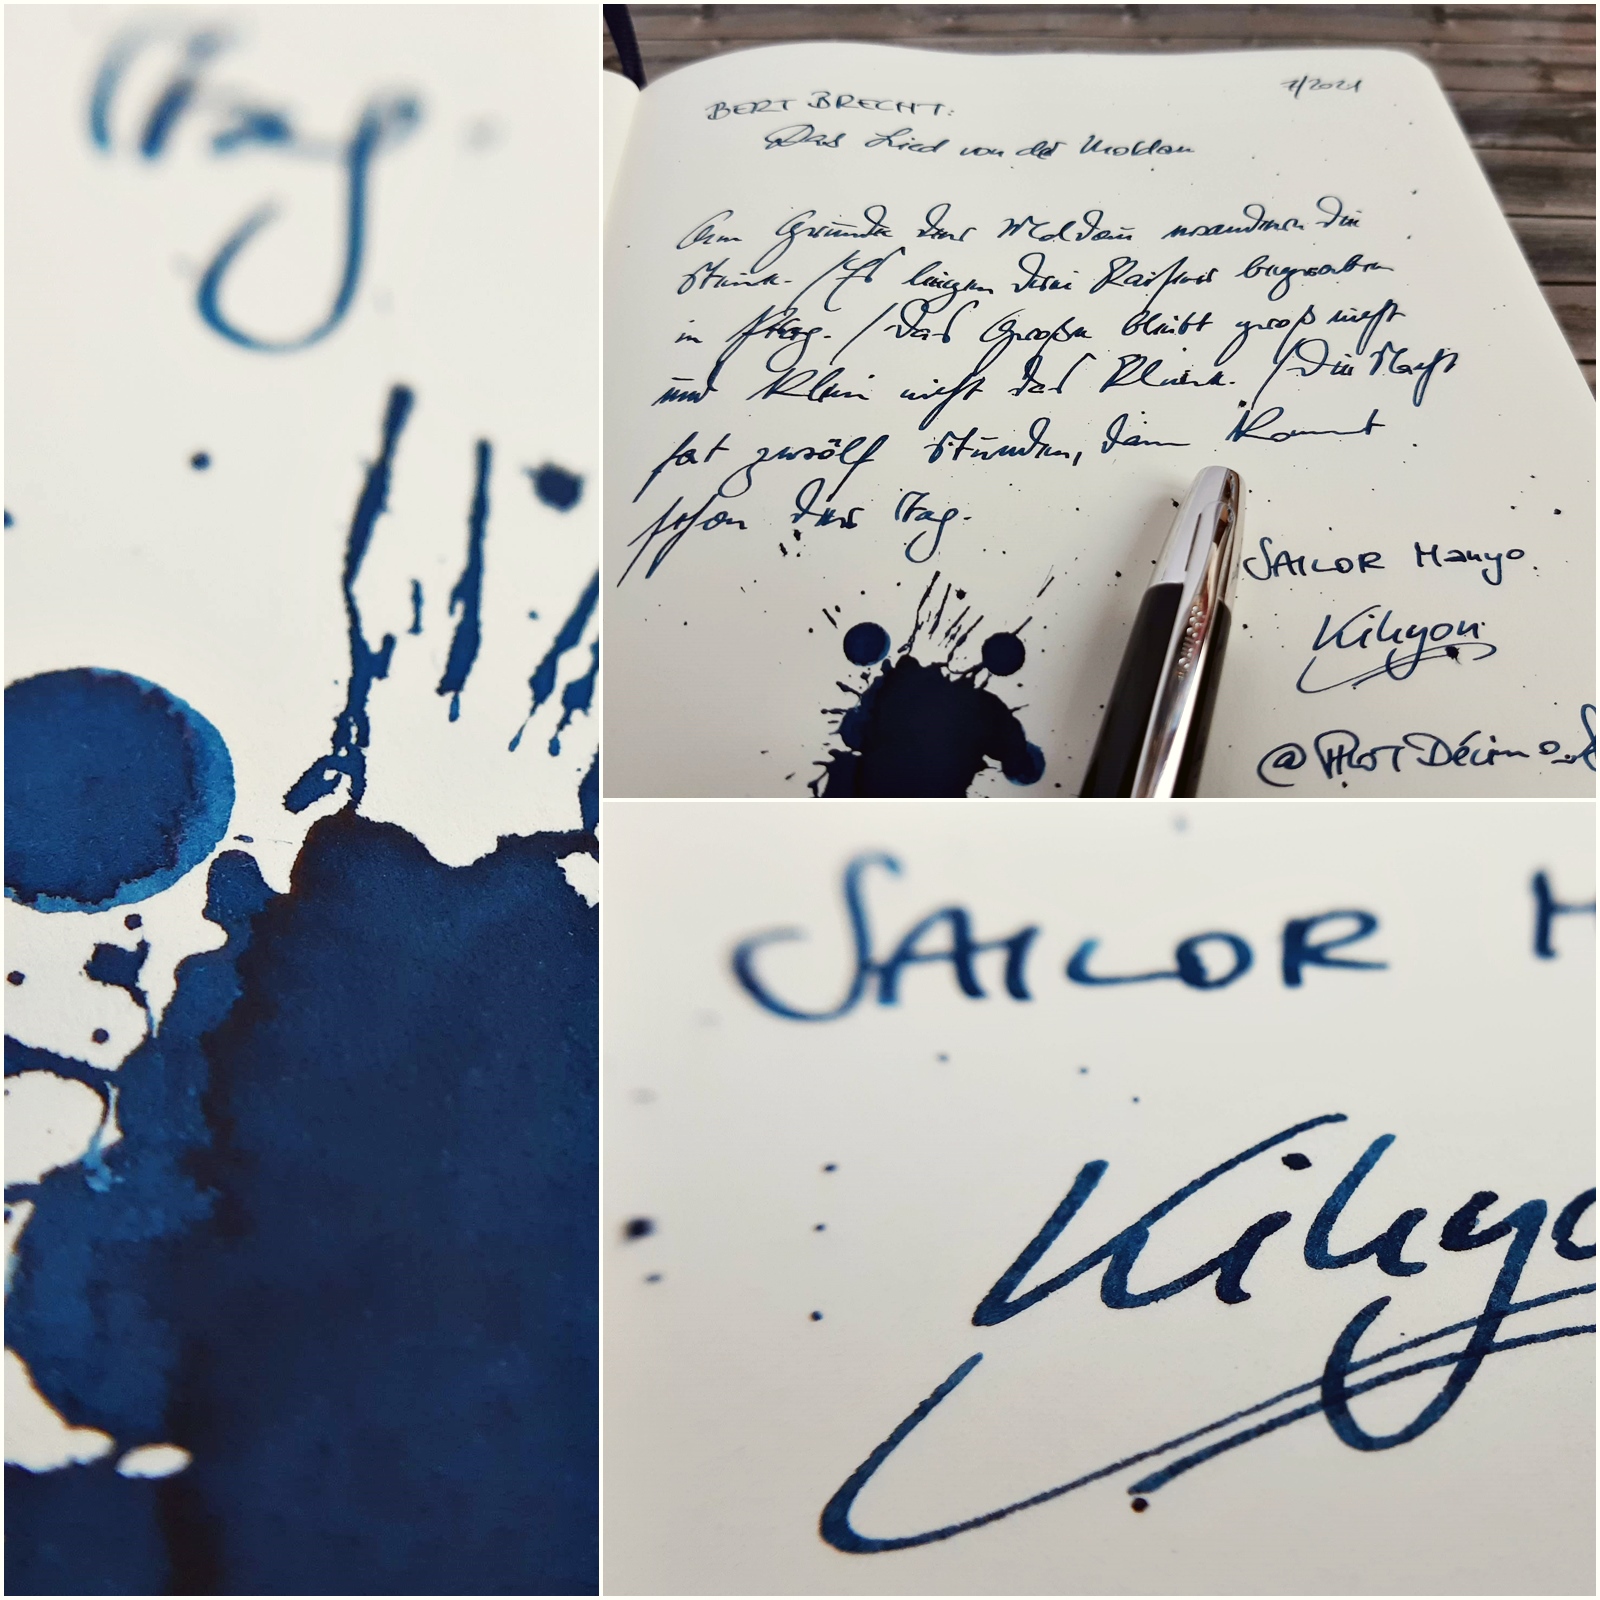 Tag.
BERT BRECHT:
7/2021
Das Lied von der Moldau
Am Grunde der Moldau wandern die
Steine. / Es liegen drei Kaiser begraben
in Prag. / Das Große bleibt groß nicht
und klein nicht das Kleine. / Die Nacht
hat zwölf Stunden, dann kommt
schon der Tag.
SAILOR Manyo
Kikyou
@Pilot Décimo
SAILOR M
Kikyo